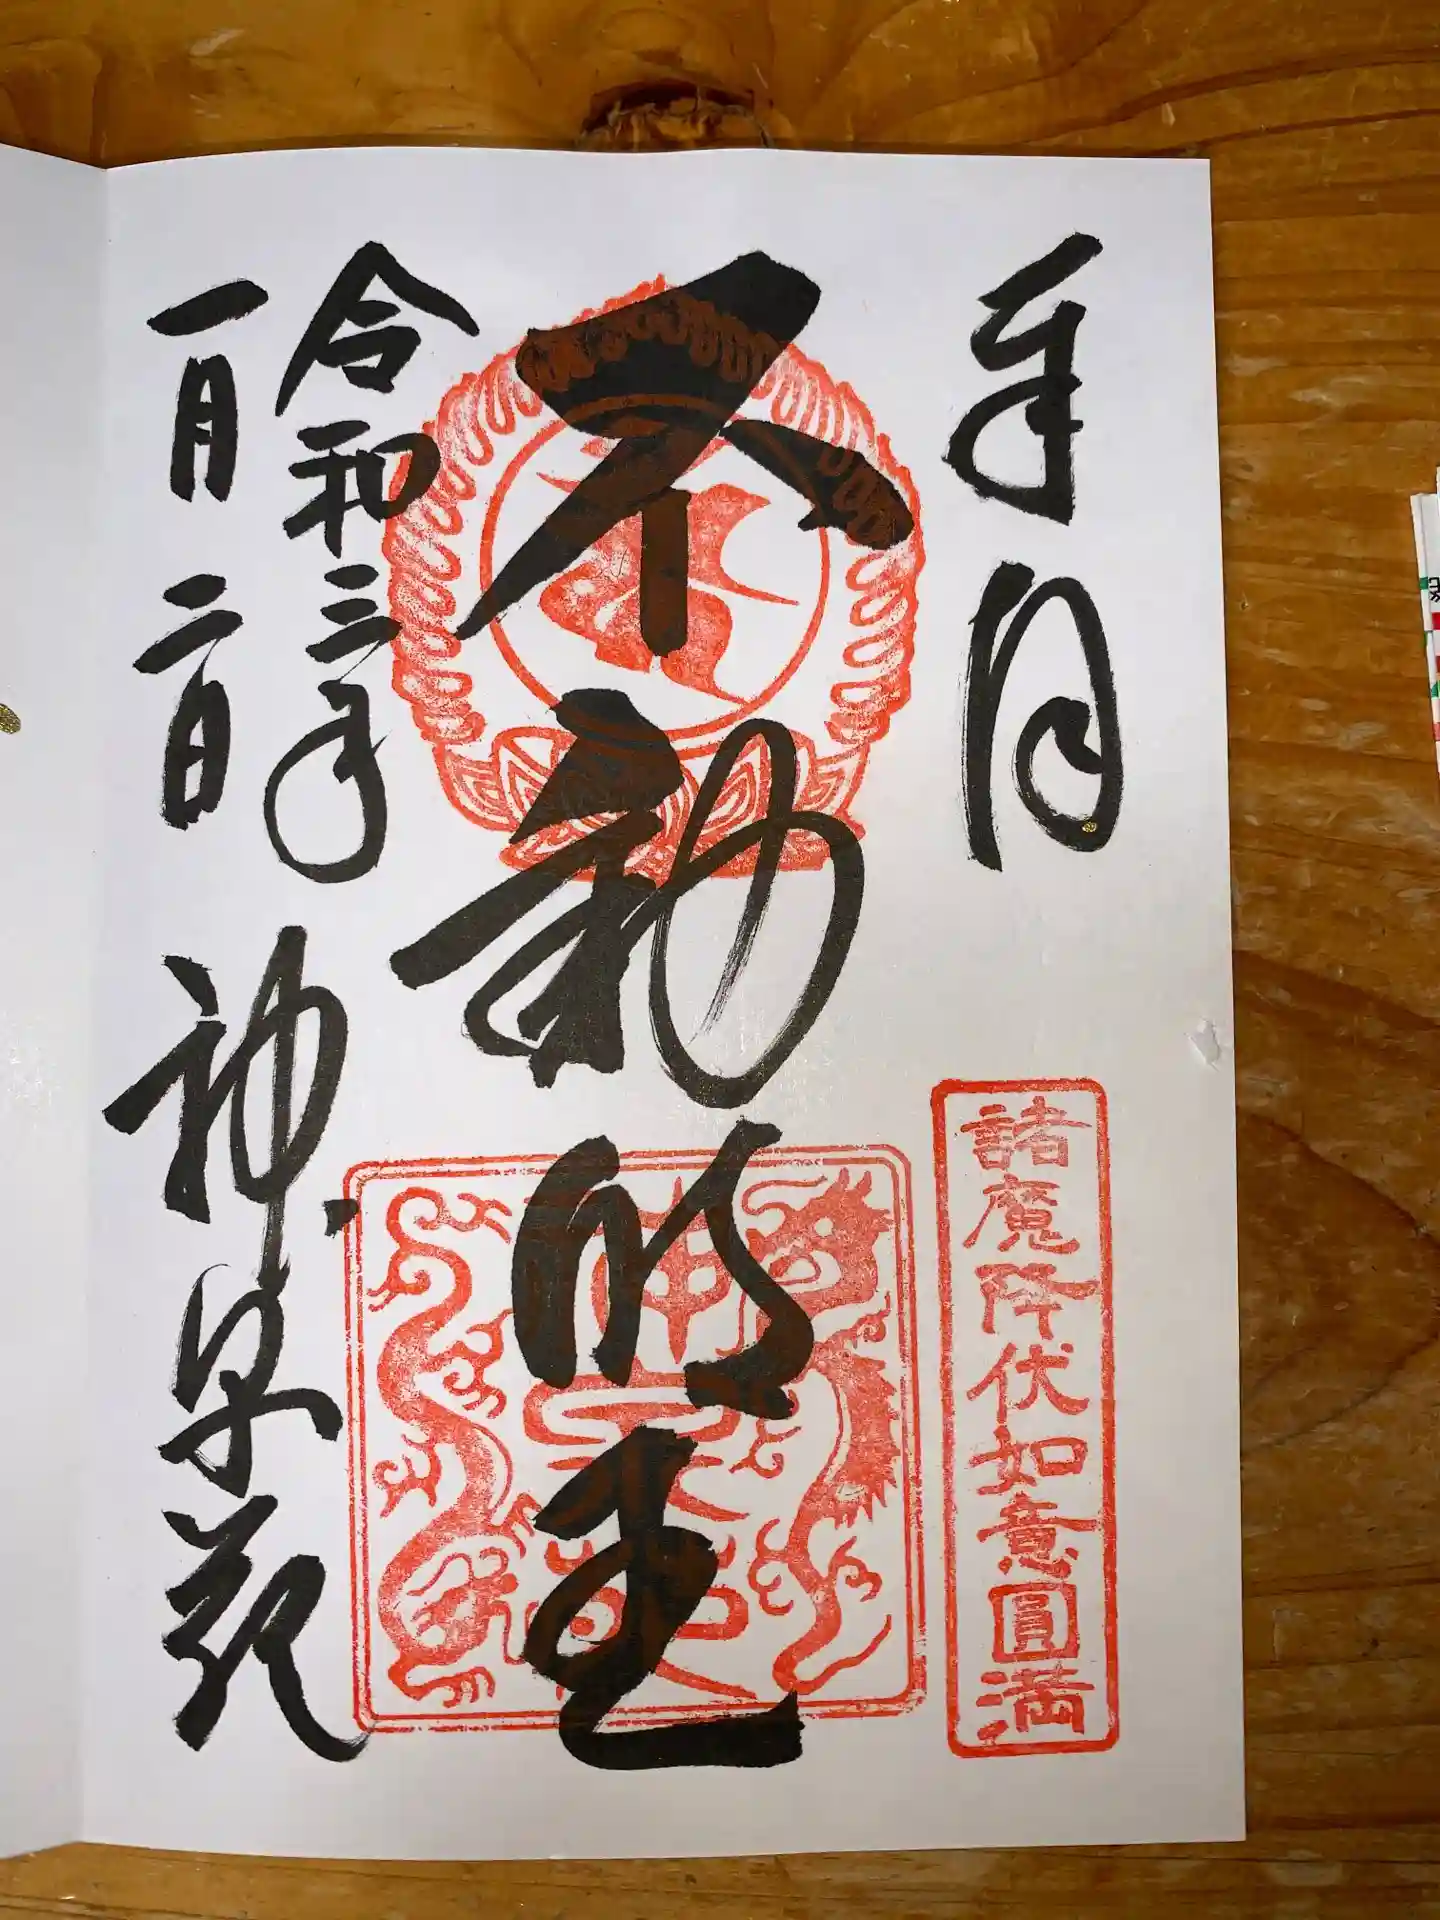 不動明王
諸魔降伏如意圓満
令和三年
一月二日
神泉苑